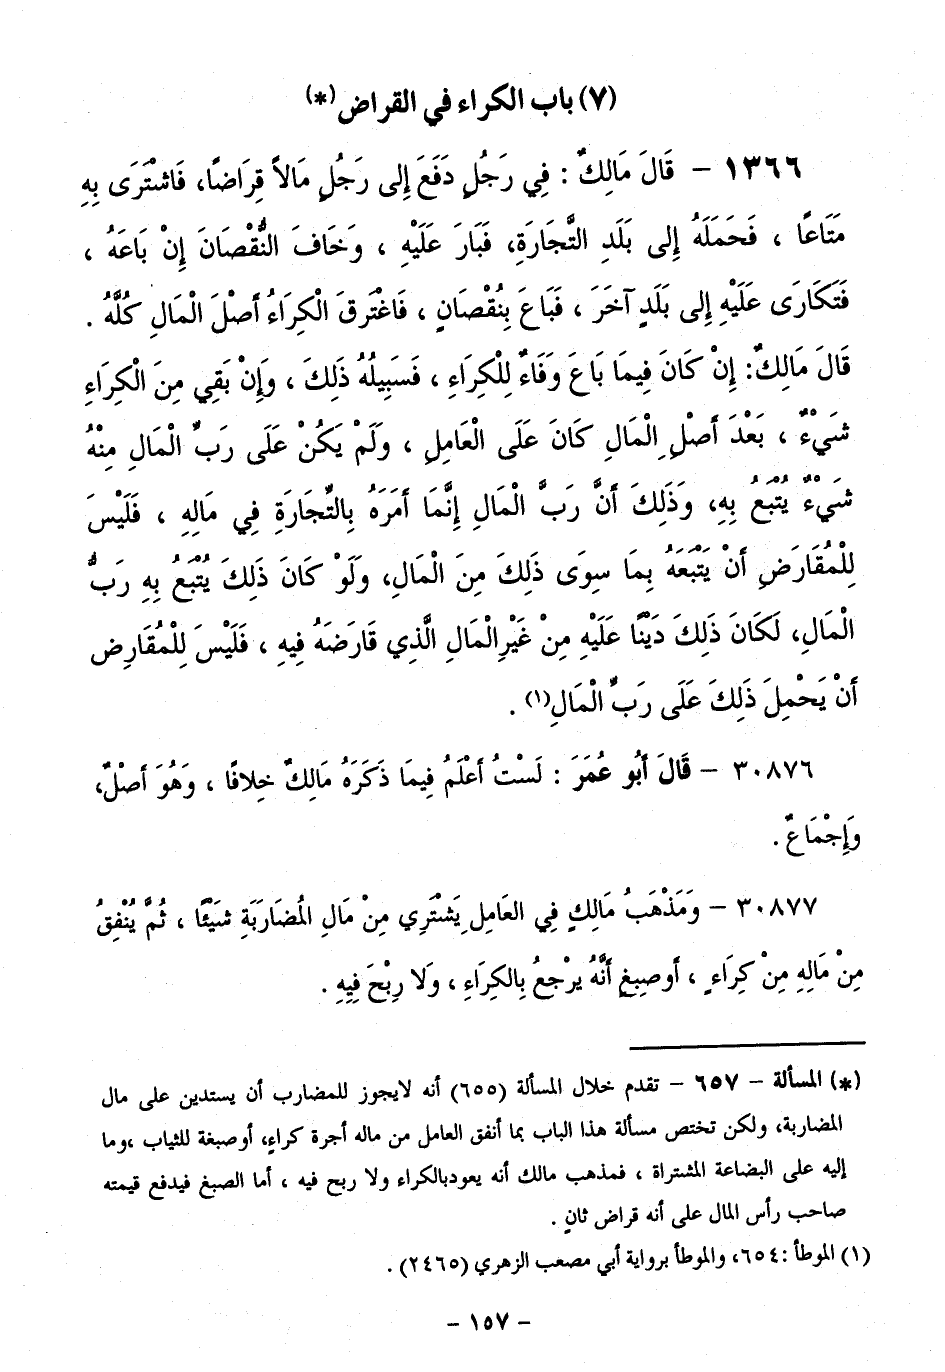 (٧) باب الكراء في القراض(*)
١٣٦٦ – قَالَ مَالِكٌ : فِي رَجُلٍ دَفَعَ إِلى رَجُلٍ مَالاً قِرَاضًا، فَاشْتَرَى بِهِ
مَتَاعًا ، فَحَمَلَهُ إِلى بَلَدِ التِّجَارَةِ، فَبَارَ عَلَيْهِ ، وَخَافَ النُّقْصَانَ إِنْ بَاعَهُ ،
فَتَكَارَى عَلَيْهِ إِلى بَلَدٍ آخَرَ ، فَبَاعَ بِنُقْصَانٍ ، فَاغْتَرقَ الْكِرَاءُ أَصْلَ الْمَالِ كُلَّهُ .
قَالَ مَالِكٌ: إِنْ كَانَ فِيمَا بَاعَ وَفَاءٌ لِلْكِرَاءِ ، فَسَبِيلُهُ ذَلِكَ ، وَإِنْ بَقِي مِنَ الْكِرَاءِ
شَيْءٌ ، بَعْدَ أَصْلِ الْمَالِ كَانَ عَلَى الْعَامِلِ ، وَلَمْ يَكُنْ عَلَى رَبِّ الْمَالِ مِنْهُ
شَيْءٌ يُتْبَعُ بِهِ، وَذَلِكَ أَنَّ رَبَّ الْمَالِ إِنَّمَا أَمَرَهُ بِالتِّجَارَةِ فِي مَالِهِ ، فَلَيْسَ
لِلْمُقَارَضِ أَنْ يَتْبَعَهُ بِمَا سِوَى ذَلِكَ مِنَ الْمَالِ، وَلَوْ كَانَ ذَلِكَ يُتْبَعُ بِهِ رَبُّ
الْمَالِ، لَكَانَ ذَلِكَ دَيْنًا عَلَيْهِ مِنْ غَيْرِ الْمَالِ الَّذِي قَارَضَهُ فِيهِ ، فَلَيْسَ لِلْمُقَارِضِ
أَنْ يَحْمِلَ ذَلِكَ عَلَى رَبِّ الْمَالِ(١) .
٣٠٨٧٦ – قَالَ أَبُو عُمَرَ : لَسْتُ أَعْلَمُ فِيمَا ذَكَرَهُ مَالِكٌ خِلافًا ، وَهُوَ أَصْلٌ،
وَإِجْمَاعٌ .
٣٠٨٧٧ – وَمَذْهَبُ مَالِكٍ فِي العَامِلِ يَشْتَرِي مِنْ مَالِ المُضَارَبَةِ شَيْئًا ، ثُمَّ يُنْفِقُ
مِنْ مَالِهِ مِنْ كِرَاءٍ ، أَو صِبغٍ أَنَّهُ يرْجعُ بِالكِرَاءِ ، وَلا رِبْحَ فِيهِ .
(*) المسألة – ٦٥٧ – تقدم خلال المسألة (٦٥٥) أنه لايجوز للمضارب أن يستدين على مال
المضاربة، ولكن تختص مسألة هذا الباب بما أنفق العامل من ماله أجرة كراءٍ، أو صبغة للثياب ،وما
إليه على البضاعة المشتراة ، فمذهب مالك أنه يعودبالكراء ولا ربح فيه ، أما الصبغ فيدفع قيمته
صاحب رأس المال على أنه قراض ثانٍ .
(١) الموطأ :٦٥٤، والموطأ برواية أبي مصعب الزهري (٢٤٦٥) .
– ١٥٧ –